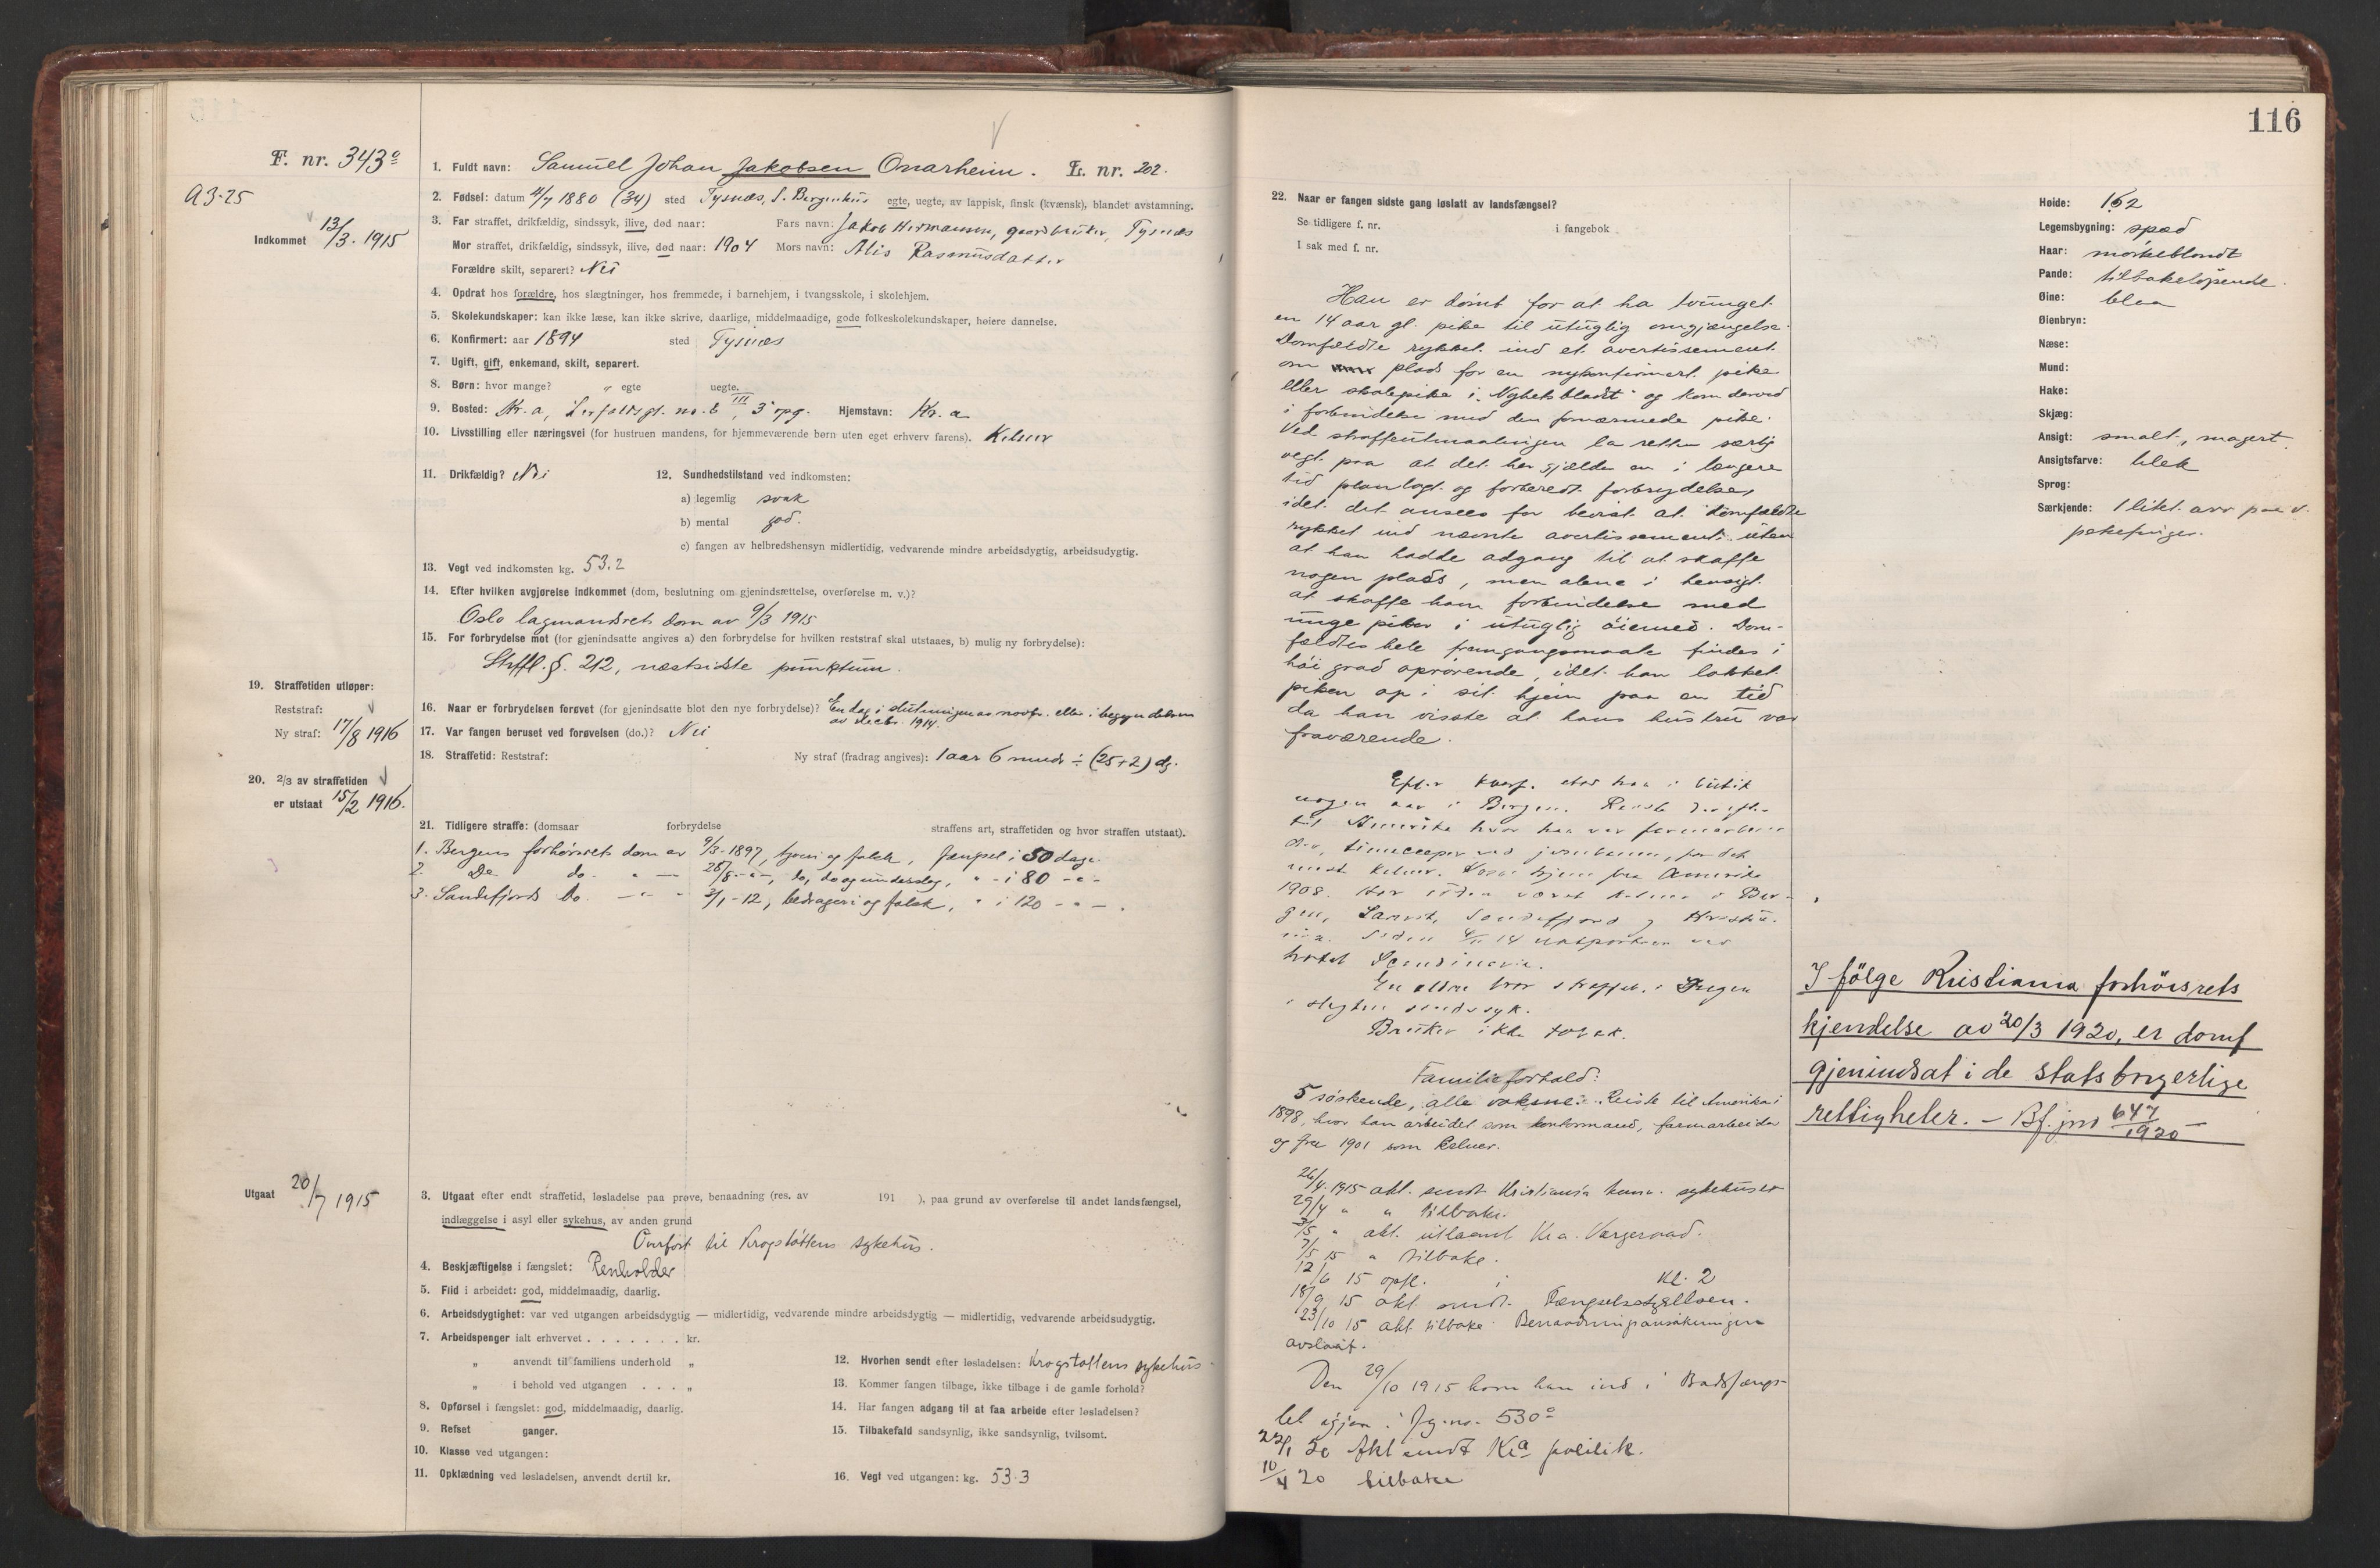 F. nr. 343a
A 3-25
Indkommet 13/3. 1915
1. Fuldt navn: Samuel Johan Jakobsen Onarheim. L. nr. 202.
2. Fødsel: datum 4/7 1880 (34) sted Tysnæs, S. Bergenhus egte, uegte, av lappisk, finsk (kvænsk), blandet avstamning.
3. Far straffet, drikfældig, sindssyk, ilive, død naar: Fars navn: Jakob Hermansen, gaardbruker, Tysnæs
Mor straffet, drikfældig, sindssyk, ilive, død naar: 1904 Mors navn: Alis Rasmusdatter
Forældre skilt, separert? Nei
4. Opdrat hos forældre, hos slægtninger, hos fremmede, i barnehjem, i tvangsskole, i skolehjem.
5. Skolekundskaper: kan ikke læse, kan ikke skrive, daarlige, middelmaadige, gode folkeskolekundskaper, høiere dannelse.
6. Konfirmert: aar 1894 sted Tysnæs
7. Ugift, gift, enkemand, skilt, separert.
8. Børn: hvor mange? " egte uegte.
9. Bosted: Kr. a, no. 6 III, 3 opg. Hjemstavn: Kr. a
10. Livsstilling eller næringsvei (for hustruen mandens, for hjemmeværende børn uten eget erhverv farens). Kelner
11. Drikfældig? Nei 12. Sundhedstilstand ved indkomsten:
a) legemlig svak
b) mental god.
c) fangen av helbredshensyn midlertidig, vedvarende mindre arbeidsdygtig, arbeidsudygtig.
13. Vegt ved indkomsten kg. 53.2
14. Efter hvilken avgjørelse indkommet (dom, beslutning om gjenindsættelse, overførelse m. v.)?
Oslo lagmandsrets dom av 9/3 1915
15. For forbrydelse mot (for gjenindsatte angives a) den forbrydelse for hvilken reststraf skal utstaaes, b) mulig ny forbrydelse):
Strffl. §. 212, næstsidste punktum.
19. Straffetiden utløper:
Reststraf:
Ny straf: 17/8 1916
16. Naar er forbrydelsen forøvet (for gjenindsatte blot den nye forbrydelse)? En dag i slutningen av novbr. eller i begyndelsen
av decbr. 1914.
17. Var fangen beruset ved forøvelsen (do.)? Nei
18. Straffetid: Reststraf: Ny straf (fradrag angives): 1 aar 6 mndr ÷ (25+2) dg.
20. 2/3 av straffetiden
er utstaat 15/2 1916.
21. Tidligere straffe: (domsaar forbrydelse straffens art, straffetiden og hvor straffen utstaat).
1. Bergens forhørsrets dom av 9/3-1897, tyveri og falsk, fængsel i 50 dage.
2. Do do. - " - 28/8 - " -, do, do og underslag, " - i 80 - " -
3. Sandefjords do. - " - 3/1-12, bedrageri og falsk, " i 120 - " -.
Utgaat 20/7 1915
3. Utgaat efter endt straffetid, løsladelse paa prøve, benaadning (res. av 191 ), paa grund av overførelse til andet landsfængsel,
indlæggelse i asyl eller sykehus, av anden grund
Overført til Krogstøttens sykehus.
4. Beskjæftigelse i fængslet: Renholder
5. Flid i arbeidet: god, middelmaadig, daarlig.
6. Arbeidsdygtighet: var ved utgangen arbeidsdygtig — midlertidig, vedvarende mindre arbeidsdygtig — midlertidig, vedvarende arbeidsudygtig.
7. Arbeidspenger ialt erhvervet . . . . . . . kr.
" anvendt til familiens underhold "
" i behold ved utgangen . . . "
8. Opførsel i fængslet: god, middelmaadig, daarlig.
9. Refset ganger.
10. Klasse ved utgangen:
11. Opklædning ved løsladelsen, anvendt dertil kr.
12. Hvorhen sendt efter løsladelsen: Krogstøttens sykehus
13. Kommer fangen tilbage, ikke tilbage i de gamle forhold?
14. Har fangen adgang til at faa arbeide efter løsladelsen?
15. Tilbakefald sandsynlig, ikke sandsynlig, tvilsomt.
16. Vegt ved utgangen: kg. 53.3
116
22. Naar er fangen sidste gang løslatt av landsfængsel?
Se tidligere f. nr. i fangebok
I sak med f. nr.
Han er dömt for at ha tvunget
en 14 aar gl. pike til utuglig omgjængelse.
Domfældte rykket ind et avertissement
om plads for en nykonfirmert pike
eller skolepike i "Nyhetsbladet" og kom derved
i forbindelse med den fornærmede pike.
Ved straffeutmaalingen la retten særlig
vegt paa at det her gjælder en i længere
tid planlagt og forberedt forbrydelse,
idet det ansees for bevist at domfældte
rykket ind nævnte avertissement uten
at han hadde adgang til at skaffe
nogen plads, men alene i hensigt
at skaffe ham forbindelse med
unge piker i utuglig öiemed. Dom-
fældtes hele fremgangsmaate findes i
höi grad oprörende, idet han lokket
piken op i sit hjem paa en tid
da han visste at hans hustru var
fraværende.
Efter konf. stod han i butik
nogen aar i Bergen. Reiste derefter
til Amerika hvor han var farmarbeider
timekeeper ved jernbanen, for det
mest kelner. Kom hjem fra Amerika
1908. Har siden været kelner i Ber-
gen, Sandefjord og Kristia-
nia. Siden 14 natportier ved
hotel Scandinavia.
En ældre bror straffet. Ingen
i slegten sindssyk.
Bruker ikke tobak.
Familieforhold:
5 söskende, alle voksne. Reiste til Amerika i
1898, hvor han arbeidet som kontormand, farmarbeider
og fra 1901 som kelner.
26/4. 1915 akt. sendt Kristiania komm. sykehuser
29/4 " " tilbake.
3/5 " akt. utlaant Kr. a. Vergeraad.
7/5 15 " tilbake.
12/6 15 opfl. i Kl. 2
18/9 15 akt. sendt Fængselsstyrelsen.
23/10 15 akt. tilbake. Benaadningsansökningen
avslaat.
Den 29/10 1915 kom han ind i Bodsfængs-
let igjen. Fg. no. 530a
22/1 20 Akt sendt Kra politik.
10/4 20 tilbake
Høide: 162
Legemsbygning: spæd
Haar: mörkeblondt
Pande: tilbakelöpende.
Øine: blaa
Øienbryn:
Næse:
Mund:
Hake:
Skjæg:
Ansigt: smalt, magert.
Ansigtsfarve: blek
Sprog:
Særkjende: 1 litet arr paa v.
pekefinger.
I fölge Kristiania forhörsrets
kjendelse av 20/3 1920, er domf
gjenindsat i de statsborgerlige
rettigheter. - Bf. jnr 647/1920